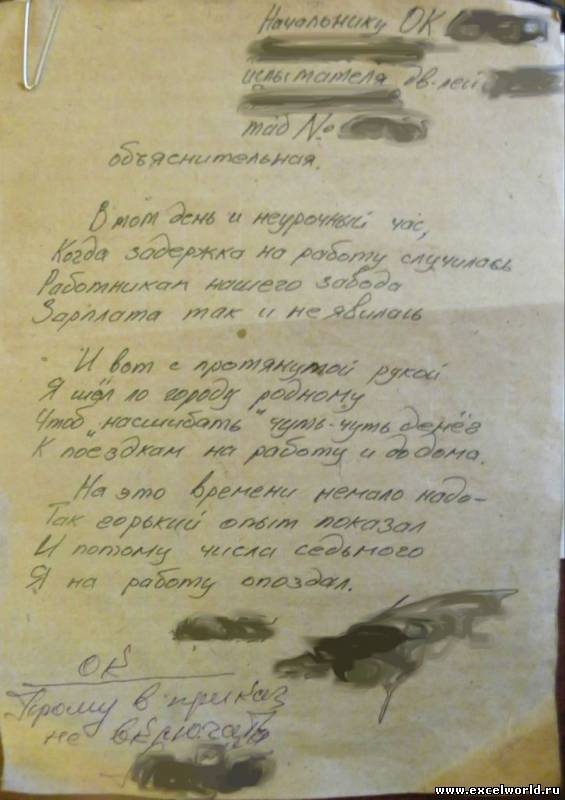 Начальнику ОК
испытателя дв-лей
таб №
объяснительная.
В тот день и неурочный час,
Когда задержка на работу случилась
Работникам нашего завода
Зарплата так и не явилась
И вот с протянутой рукой
Я шёл по городу родному
Чтоб "насшибать" чуть-чуть денёг
К поездкам на работу и до дома.
На это времени немало надо-
Так горький опыт показал
И потому числа седьмого
Я на работу опоздал.
ОК
Прошу в приказ
не включать
www.excelworld.ru